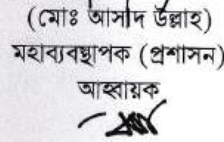 (মোঃ আসাদ উল্লাহ)
মহাব্যবস্থাপক (প্রশাসন)
আহ্বায়ক